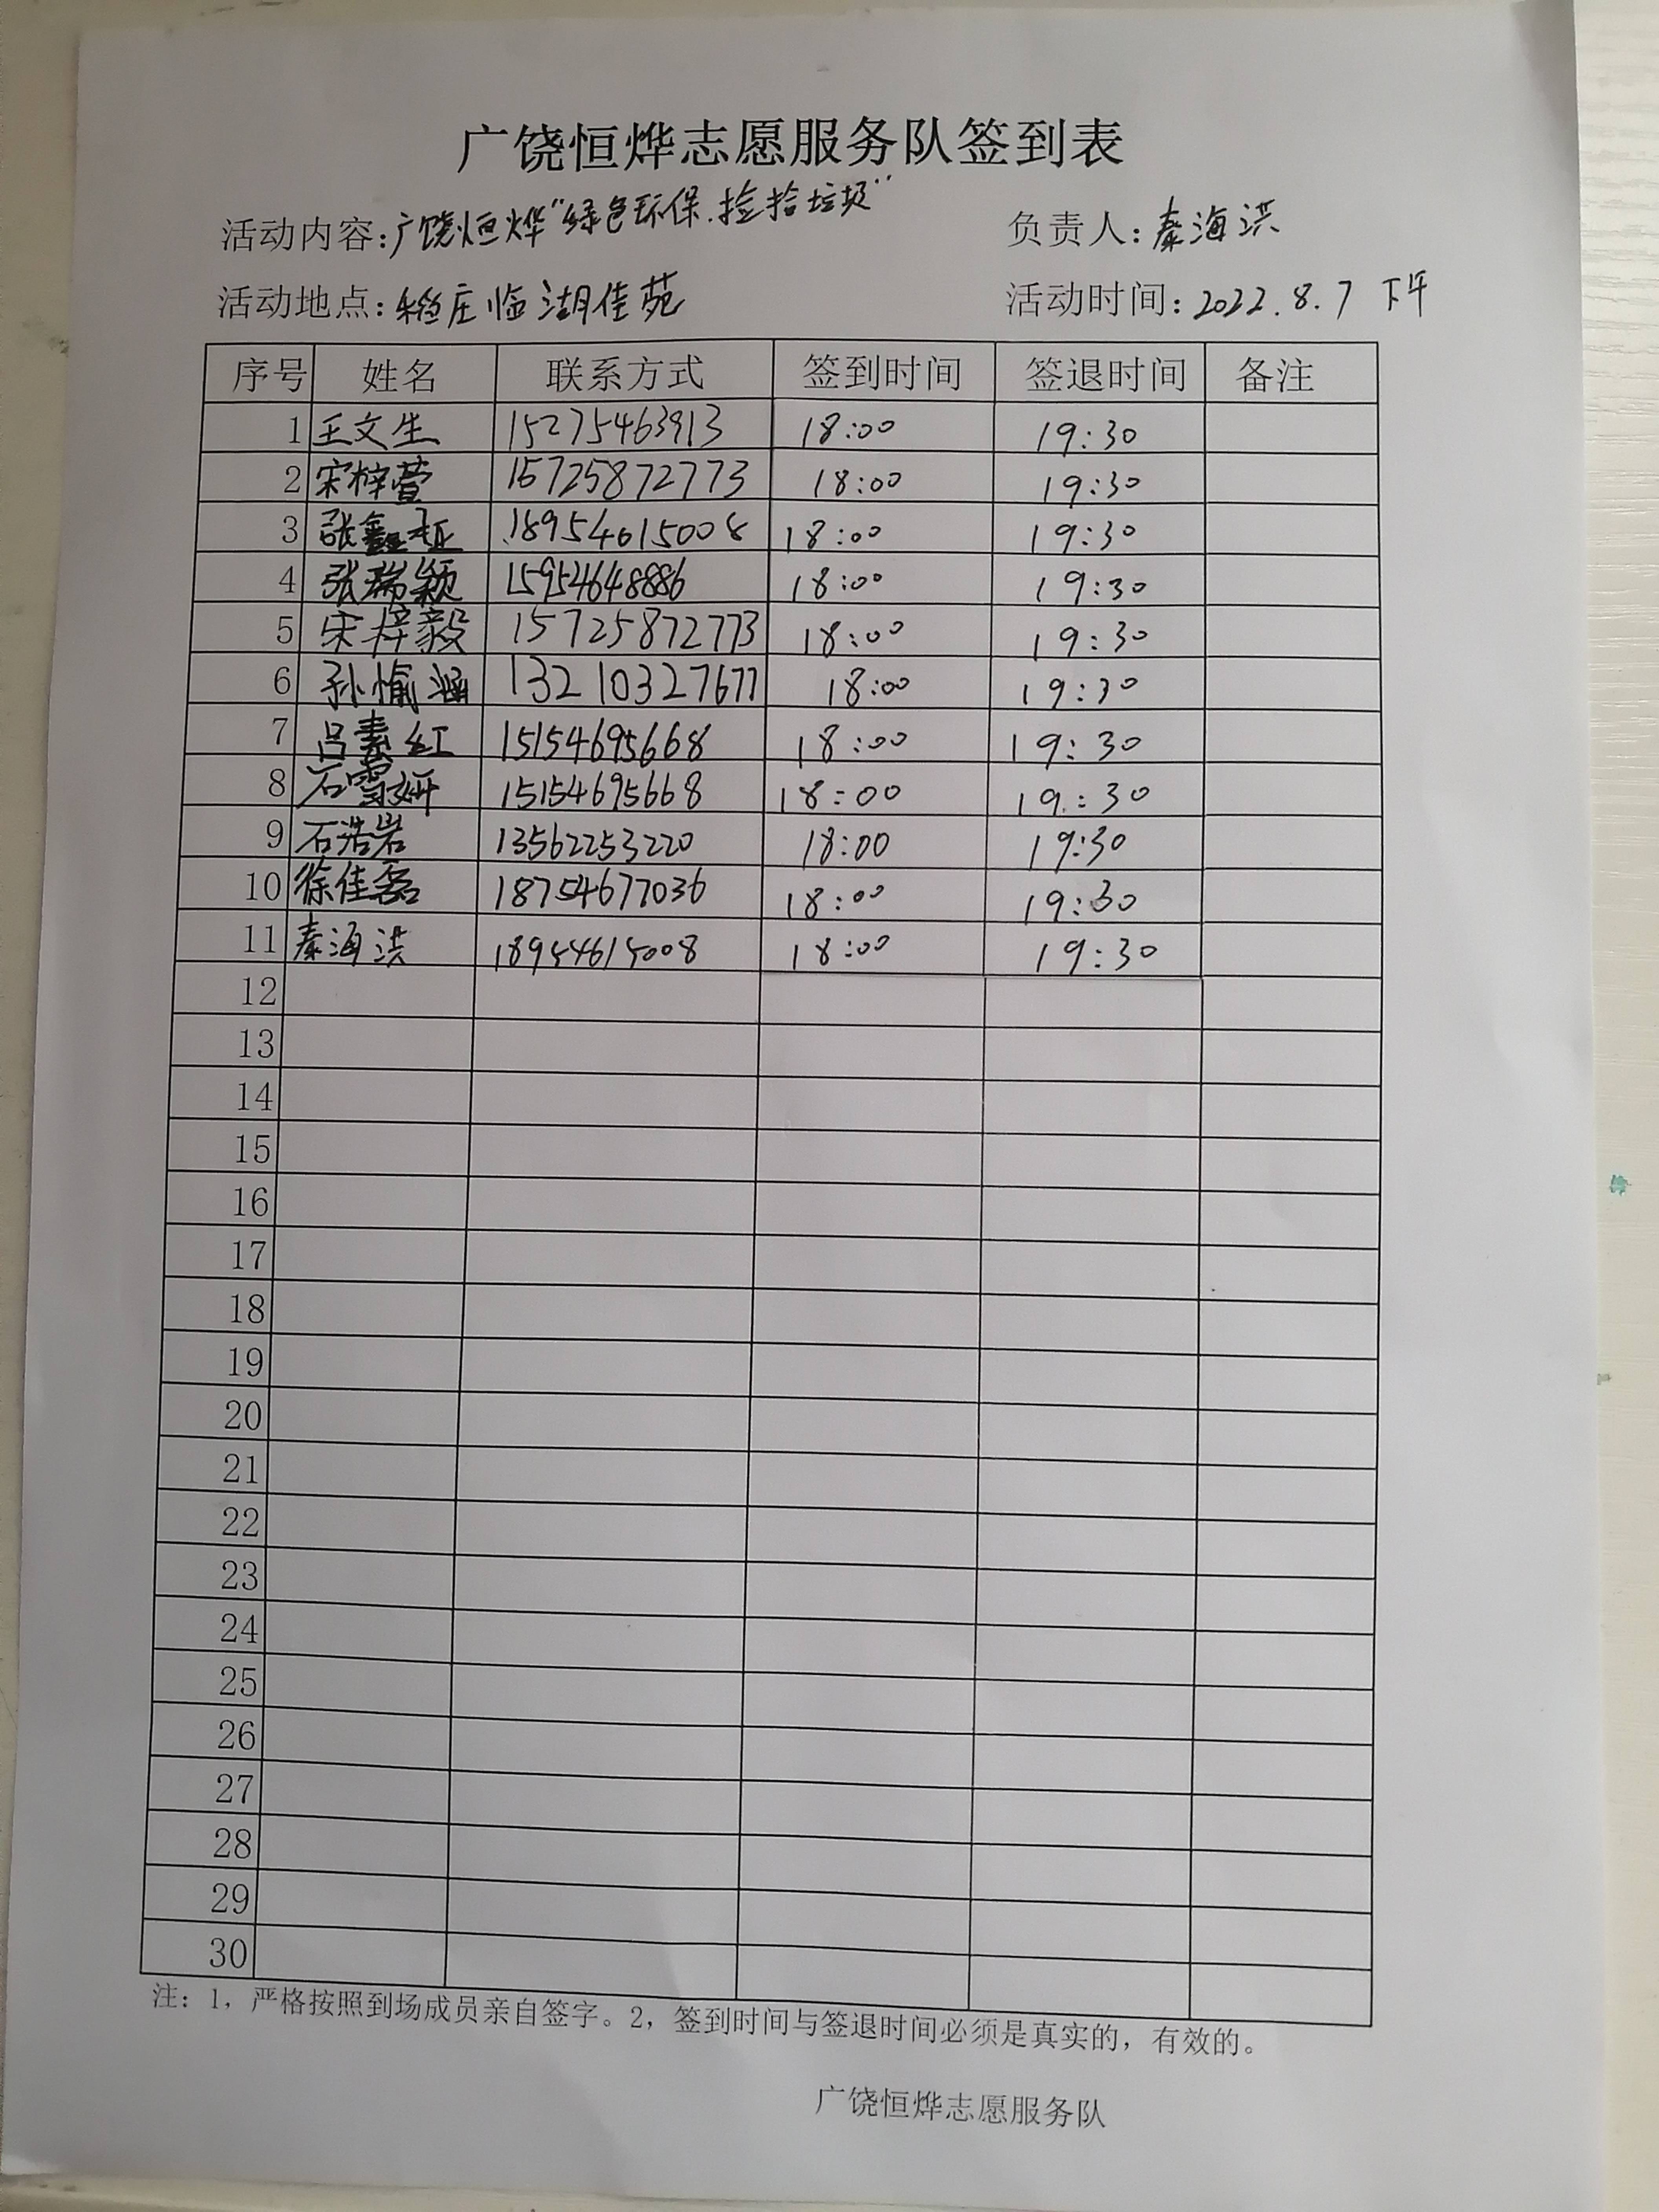 广饶恒烨志愿服务队签到表
活动内容:广饶恒烨"绿色环保.捡拾垃圾" 负责人:秦海洪
活动地点:稻庄临湖佳苑 活动时间:2022.8.7 下午
序号 姓名 联系方式 签到时间 签退时间 备注
1 王文生 15275463913 18:00 19:30
2 宋梓萱 15725872773 18:00 19:30
3 张鑫 18954615008 18:00 19:30
4 张瑞颖 15954648886 18:00 19:30
5 宋梓毅 15725872773 18:00 19:30
6 孙愉涵 13210327677 18:00 19:30
7 吕素红 15154695668 18:00 19:30
8 石雪妍 15154695668 18:00 19:30
9 石浩岩 13562253220 18:00 19:30
10 徐佳磊 18754677036 18:00 19:30
11 秦海洪 18954615008 18:00 19:30
12
13
14
15
16
17
18
19
20
21
22
23
24
25
26
27
28
29
30
注：1，严格按照到场成员亲自签字。2，签到时间与签退时间必须是真实的，有效的。
广饶恒烨志愿服务队